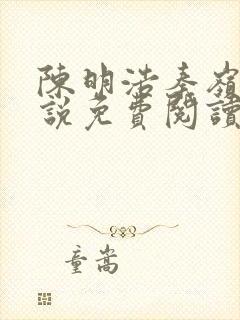 陳明浩秦嶺
說免費閱讀
童嵩